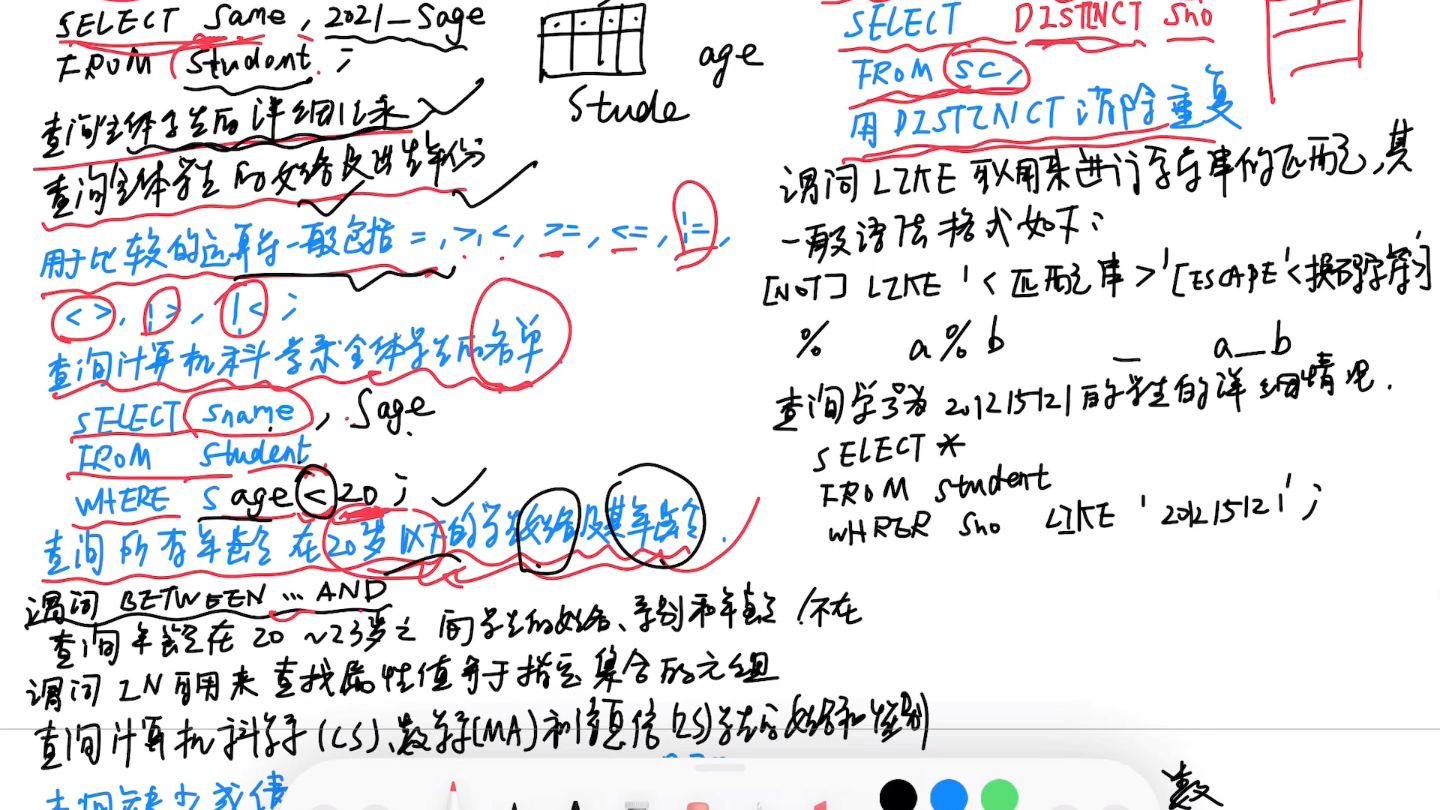 SELECT Sname, 2021-Sage
FROM Student;
查询全体学生的详细记录
查询全体学生的姓名及出生年份
用于比较的运算符一般包括 =, >, <, >=, <=, !=,
<>, !>, !<;
查询计算机科学系全体学生的名单
SELECT sname, Sage
FROM Student
WHERE sage < 20;
查询所有年龄在20岁以下的学生姓名及其年龄.
谓词 BETWEEN … AND
查询年龄在 20 ~23岁之间的学生的姓名、系别和年龄 (不在
谓词 IN 可用来查找属性值属于指定集合的元组
查询计算机科学系(CS)、数学系(MA)和信息系(IS)学生的姓名和性别
age
Stude
SELECT DISTINCT Sno
FROM SC;
用 DISTINCT 消除重复
谓词 LIKE 可以用来进行字符串的匹配,其
一般语法格式如下:
[NOT] LIKE '<匹配串>' [ESCAPE '<换码字符>']
% a%b _ a_b
查询学号为 201215121 的学生的详细情况.
SELECT *
FROM Student
WHRER Sno LIKE '201215121';
数